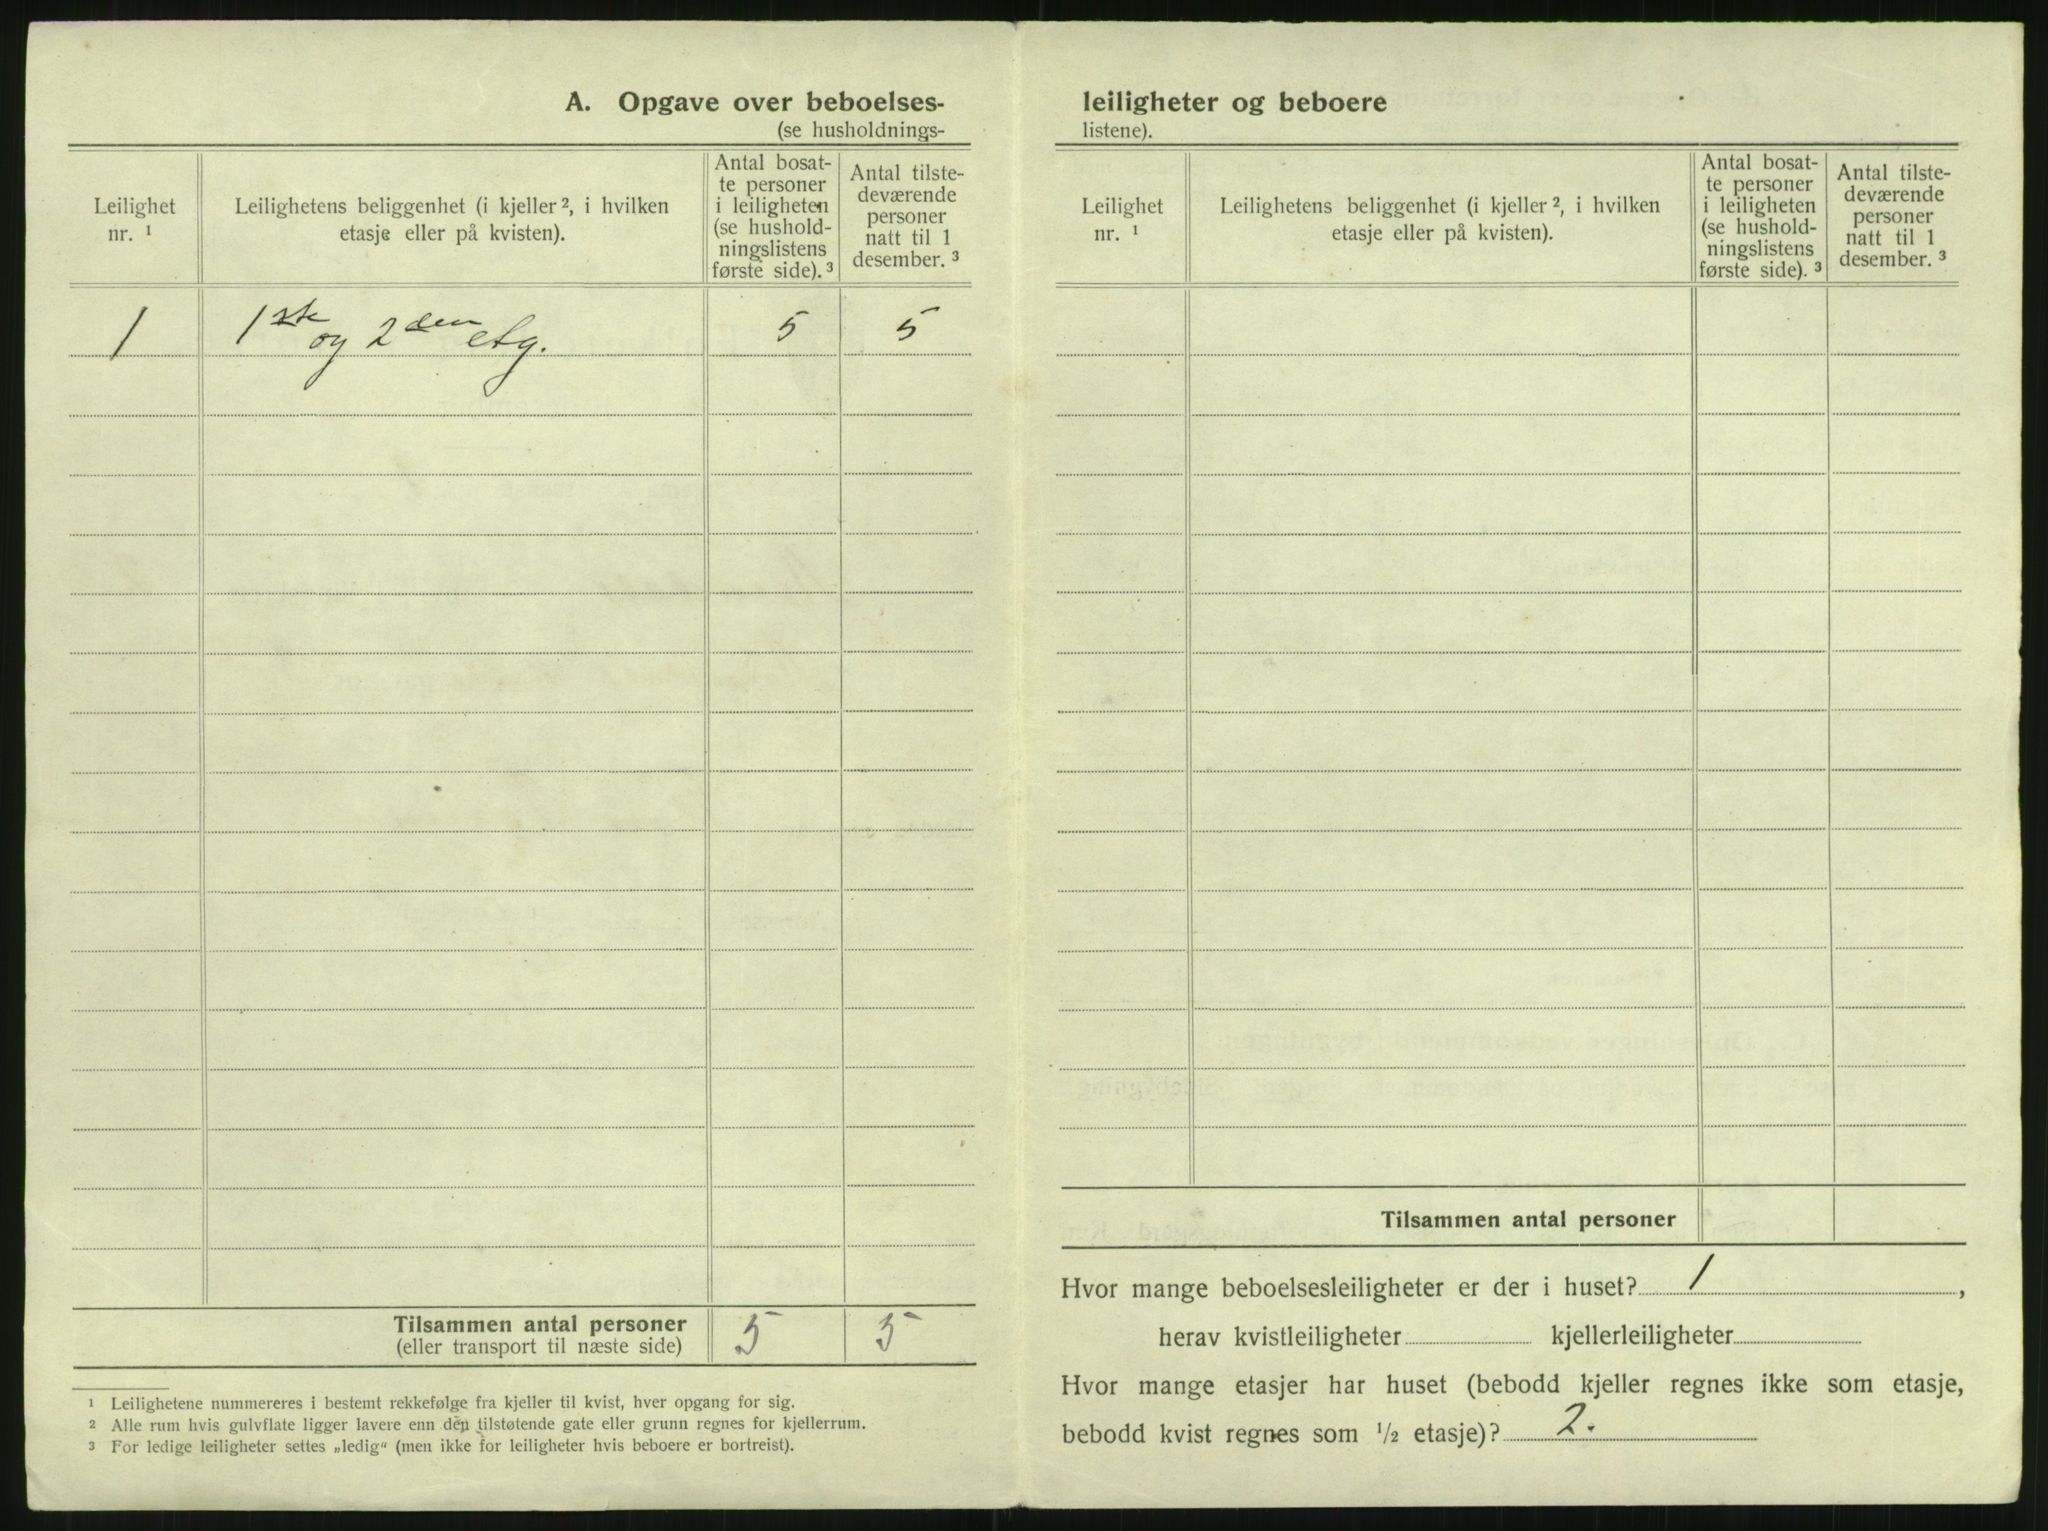 A. Opgave over beboelses-
(se husholdnings-
Leilighet
nr. ¹
Leilighetens beliggenhet (i kjeller ², i hvilken
etasje eller på kvisten).
Antal bosat-
te personer
i leiligheten
(se hushold-
ningslistens
første side). ³
Antal tilste-
deværende
personer
natt til 1
desember. ³
1 1ste og 2den etg. 5 5
Tilsammen antal personer 5 5
(eller transport til næste side)
¹ Leilighetene nummereres i bestemt rekkefølge fra kjeller til kvist, hver opgang for sig.
² Alle rum hvis gulvflate ligger lavere enn den tilstøtende gate eller grunn regnes for kjellerrum.
³ For ledige leiligheter settes „ledig“ (men ikke for leiligheter hvis beboere er bortreist).
leiligheter og beboere
listene).
Leilighet
nr. ¹
Leilighetens beliggenhet (i kjeller ², i hvilken
etasje eller på kvisten).
Antal bosat-
te personer
i leiligheten
(se hushold-
ningslistens
første side). ³
Antal tilste-
deværende
personer
natt til 1
desember. ³
Tilsammen antal personer
Hvor mange beboelsesleiligheter er der i huset? 1 ,
herav kvistleiligheter kjellerleiligheter
Hvor mange etasjer har huset (bebodd kjeller regnes ikke som etasje,
bebodd kvist regnes som ½ etasje)? 2.